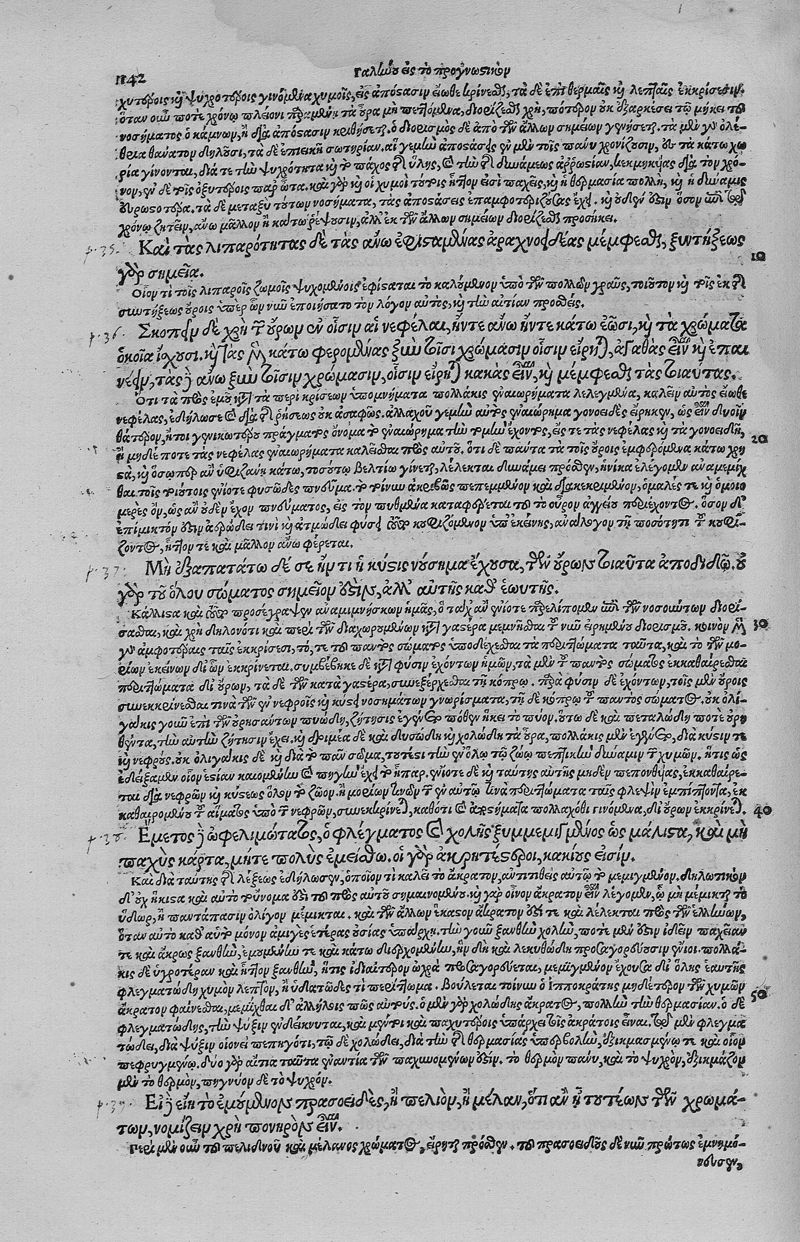 1142 Γαληνοῦ εἰς τὸ προγνωστικὸν
χυτέροις καὶ ψυχροτέροις γινόμενα χυμοῖς, εἰς ἀπόστασιν εἴωθε κρίνεσθαι, τὰ δὲ ἐπὶ θερμαῖς καὶ λεπταῖς ἐκκρίσεσιν.
ὅταν οὖν ποτε χρόνῳ πλείονι τὰ οὖρα μὴ πεπτόμενα, διορίζεσθαι χρὴ, πότερον οὐκ ἐξαρκέσει τῷ μήκει τοῦ
νοσήματος ὁ κάμνων, ἢ δι' ἀπόστασιν κριθήσεται. ὁ διορισμὸς δὲ ἀπὸ τῶν ἄλλων σημείων γενήσεται. τὰ μὲν γὰρ ὀλέ-
θρια θάνατον δηλώσει, τὰ δὲ ἐπιεικῆ σωτηρίαν. αἱ γε μὴν ἀποστάσεις ἐν μὲν τοῖς πάνυ χρονίζουσιν, ἐν τὰ κάτω χω-
ρία γίνονται, διά τε τὴν ψυχρότητα καὶ τὸ πάχος τῆς ὕλης, καὶ τὴν τῆς δυνάμεως ἀρρωστίαν, κεκμηκυίας διὰ τὸν χρό-
νον, ἐν δὲ τοῖς ὀξυτέροις παρ' ὦτα. καὶ γὰρ καὶ οἱ χυμοὶ τούτοις ἧττον εἰσὶ παχεῖς, καὶ ἡ θερμασία πολλὴ, καὶ ἡ δύναμις
εὐρωστοτέρα. τὰ δὲ μεταξὺ τούτων νοσήματα, τὰς ἀποστάσεις ἐπαμφοτεριζούσας ἔχει. καὶ οὐδὲν ὅσον ἐπὶ τῷ
χρόνῳ ζητεῖν, ἄνω μᾶλλον ἢ κάτω ῥέψουσιν, ἀλλ' ἐκ τῶν ἄλλων σημείων διορίζεσθαι προσήκει.
p. 35. Καὶ τὰς λιπαρότητας δὲ τὰς ἄνω ἐφισταμένας ἀραχνοειδέας μέμφεσθαι, ξυντήξεως 10
γὰρ σημεῖα.
Οἷόν τι τοῖς λιπαροῖς ζωμοῖς ψυχομένοις ἐφίσταται τὸ καλούμενον ὑπὸ τῶν πολλῶν γραῦς, τοιοῦτον καὶ τοῖς ἐκ τῆς
συντήξεως οὔροις ὑπὲρ ὧν νῦν ἐποιήσατο τὸν λόγον αὐτὸς, καὶ τὴν αἰτίαν προσθείς.
p. 36. Σκοπεῖν δὲ χρὴ τῶν οὔρων ἐν οἷσιν αἱ νεφέλαι, ἤντε ἄνω ἤντε κάτω ἔωσι, καὶ τὰ χρώματα
ὁκοῖα ἴσχουσι, καὶ τὰς μὲν κάτω φερομένας ξὺν τοῖσι χρώμασιν οἷσιν εἴρηται, ἀγαθὰς εἶναι καὶ ἐπαι
νεῖν, τὰς δὲ ἄνω ξὺν τοῖσιν χρώμασιν, οἷσιν εἴρηται κακὰς εἶναι, καὶ μέμφεσθαι τὰς τοιαύτας.
Ὅτι τὰ πρὸς ἐμοῦ κατὰ τὰ περὶ κρίσεων ὑπομνήματα πολλάκις ἐναιωρήματα λελεγμένα, καλεῖν αὐτὸς εἴωθε
νεφέλας, ἐδήλωσε καὶ διὰ τῆς ῥήσεως οὐκ ἀσαφῶς. ἀλλαχοῦ γε μὴν αὐτὸς ἐναιώρημα γονοειδὲς εἴρηκεν, ὡς εἶναι δυοῖν
θάτερον, ἤτοι γενικωτέρου πράγματος ὄνομα τὸ ἐναιώρημα τομὴν ἔχοντος, εἴς τε τὰς νεφέλας καὶ τὰ γονοειδῆ, 20
ἢ μηδέποτε τὰς νεφέλας ἐναιωρήματα καλεῖσθαι πρὸς αὐτοῦ, ὅτι δὲ πάντα τὰ τοῖς οὔροις ἐμφερόμενα κάτω χρη
στὰ, καὶ ὅσωπερ ἂν ὑφιζάνῃ κάτω, τοσούτῳ βελτίω γίνεται, λέλεκται δυνάμει πρόσθεν, ἡνίκα ἐλέγομεν ἀναμεμίχ
θαι τοῖς τοιούτοις ἐνίοτε φυσῶδες πνεῦμα. τὸ τοίνυν ἀκριβῶς πεπεμμένον καὶ διακεκριμένον, ὁμαλές τε καὶ ὁμοιο
μερὲς ὂν, ὡς ἂν οὐδὲν ἔχον πνεύματος, εἰς τὸν πυθμένα καταφέρεται τοῦ τὸ οὖρον ἀγγείου περιέχοντος. ὅσον δ'
ἐπίμικτον ἀερώδει τινὶ καὶ ἀτμώδει φύσει κουφιζόμενον ὑπ' ἐκείνης, ἀνάλογον τῇ ποσότητι τοῦ κουφί-
ζοντος, ἧττόν τε καὶ μᾶλλον ἄνω φέρεται.
p. 37. Μὴ ἐξαπατάτω δέ σε ἤν τι ἡ κύστις νόσημα ἔχουσα, τῶν οὔρων τοιαῦτα ἀποδιδῷ. οὐ
γὰρ τοῦ ὅλου σώματος σημεῖον, ἀλλ' αὐτῆς καθ' ἑωυτῆς.
Κάλλιστα καὶ τοῦτο προσέγραψεν ἀναμιμνήσκων ἡμᾶς, ὃ τάχ' ἂν ἐνίοτε παρελίπομεν ἐπὶ τῶν νοσούντων διορί-
σασθαι, καὶ χρὴ δηλονότι καὶ περὶ τῶν διαχωρουμένων κατὰ γαστέρα μεμνῆσθαι τοῦ νῦν εἰρημένου διορισμοῦ. κοινὸν μὲν 30
γὰρ ἀμφοτέραις ταῖς ἐκκρίσεσι, τό, τε τοῦ παντὸς σώματος ὑποδέχεσθαι τὰ περιττώματα ταῦτα, καὶ τὸ τῶν μο-
ρίων ἐκείνων δι' ὧν ἐκκρίνεται. συμβέβηκε δὲ κατὰ φύσιν ἐχόντων ἡμῶν, τὰ μὲν τοῦ παντὸς σώματος ἐκκαθαίρεσθαι
περιττώματα δι' οὔρων, τὰ δὲ τῶν κατὰ γαστέρα, συνεξέρχεσθαι τῇ κόπρῳ. παρὰ φύσιν δὲ ἐχόντων, τοῖς μὲν οὔροις
συνεκκρίνεσθαί τινα τῶν ἐν νεφροῖς καὶ κύστει νοσημάτων γνωρίσματα, τῇ δὲ κόπρῳ τοῦ παντὸς σώματος. οὐκ ὀλι-
γάκις γοῦν ἐπὶ τῶν οὐρησάντων πυώδη, ζήτησις ἐγένετο πόθεν ἥκει τὸ πῦον. οὕτω δὲ καὶ πεταλώδη ποτὲ οὐρη
θέντα, τὴν αὐτὴν ζήτησιν ἔχει, καὶ δριμέα δὲ καὶ δυσώδη καὶ χολώδη τὰ οὖρα, πολλάκις μὲν ἐγένετο, διὰ κύστιν τε
καὶ νεφροὺς, οὐκ ὀλιγάκις δὲ καὶ διὰ τὸ πᾶν σῶμα, τουτέστι τὴν ἐν ὅλῳ τῷ ζώῳ πεπτικὴν δύναμιν τῶν χυμῶν. ἥτις ὡς
ἐδείξαμεν οἷον ἑστίαν καιομένην καὶ πηγὴν ἔχει τὸ ἧπαρ. ἐνίοτε δὲ καὶ ταύτης αὐτῆς μηδὲν πεπονθυίας, ἐκκαθαίρε-
ται διὰ νεφρῶν καὶ κύστεως ὅλον τὸ ζῶον. ἢ μορίων τινῶν τῶν ἐν αὐτῷ τινὰ περιττώματα ταῖς φλεψὶν ἐμπίπτοντα, ἐκ
καθαιρομένου τοῦ αἵματος ὑπὸ τῶν νεφρῶν, συνεκκρίνεται, καθότι καὶ ἀποστήματα πολλαχόθι γινόμενα, δι' οὔρων ἐκκρίνεται. 40
p. 38. Ἔμετος δὲ ὠφελιμώτατος, ὁ φλέγματος καὶ χολῆς ξυμμεμιγμένος ὡς μάλιστα, καὶ μὴ
παχὺς κάρτα, μήτε πολὺς ἐμείσθω. οἱ γὰρ ἀκρητέστεροι, κακίους εἰσίν.
Καὶ διὰ ταύτης τῆς λέξεως ἐδήλωσεν, ὁποῖόν τι καλεῖ τὸ ἄκρατον, ἀντιτιθεὶς αὐτῷ τὸ μεμιγμένον. δηλωτικὸν
δ' οὐχ ἥκιστα καὶ αὐτὸ τοὔνομά ἐστι τοῦ πρὸς αὐτοῦ σημαινομένου. καὶ γὰρ οἶνον ἄκρατον εἶναι λέγομεν, ᾧ μὴ μέμικται τὸ
ὕδωρ, ἢ παντάπασιν ὀλίγον μέμικται. καὶ τῶν ἄλλων ἕκαστον ἄκρατον ἔστι τε καὶ λέλεκται πρὸς τῶν ἑλλήνων,
ὅταν αὐτὸ καθ' αὑτὸ μόνον ἀμιγὲς ἑτέρας οὐσίας ὑπάρχῃ. τὴν γοῦν ξανθὴν χολὴν, ποτὲ μὲν ἔστιν ἰδεῖν παχεῖαν
τε καὶ ἄκρως ξανθὴν, ἐμουμένην τε καὶ κάτω διερχομένην, ἣν δὴ καὶ λεκιθώδη προσαγορεύουσιν ἔνιοι. πολλά-
κις δὲ ὑγροτέραν καὶ ἧττον ξανθὴν, ἥτις ἰδιαίτερον ὠχρὰ προσαγορεύεται, μεμιγμένον ἔχουσα δι' ὅλης ἑαυτῆς
φλεγματώδη χυμὸν λεπτὸν, ἢ ὑδατῶδές τι περίττωμα. Βούλεται τοίνυν ὁ Ἱπποκράτης μηδέτερον τῶν χυμῶν
ἄκρατον φαίνεσθαι, μεμίχθαι δ' ἀλλήλοις πως αὐτούς. ὁ μὲν γὰρ χολώδης ἄκρατος, πολλὴν τὴν θερμασίαν. ὁ δὲ 50
φλεγματώδης, τὴν ψύξιν ἐνδείκνυται, καὶ μέντοι καὶ παχυτέροις ὑπάρχει τοῖς ἀκράτοις εἶναι. τῷ μὲν φλεγμα
τώδει, διὰ ψύξιν οἱονεὶ πεπηγότι, τῷ δὲ χολώδει, διὰ τὴν τῆς θερμασίας ὑπερβολὴν, ἐξικμασμένῳ τε καὶ οἷον
πεφρυγμένῳ. δύο γὰρ αἴτια ταῦτα ἐναντία τῶν παχυνομένων ἐστίν. τὸ θερμὸν πάνυ, καὶ τὸ ψυχρὸν, ἐξικμάζον
μὲν τὸ θερμὸν, πηγνύον δὲ τὸ ψυχρόν.
p. 39. Εἰ δὲ εἴη τὸ ἐμούμενον πρασοειδὲς, ἢ πελιὸν, ἢ μέλαν, ὅ τι ἂν ᾖ τουτέων τῶν χρωμά-
των, νομίζειν χρὴ πονηρὸν εἶναι.
Περὶ μὲν οὖν τοῦ πελιδνοῦ καὶ μέλανος χρώματος, εἴρηται πρόσθεν. τοῦ πρασοειδοῦς δὲ νῦν πρώτως ἐμνημό-
νευσεν,